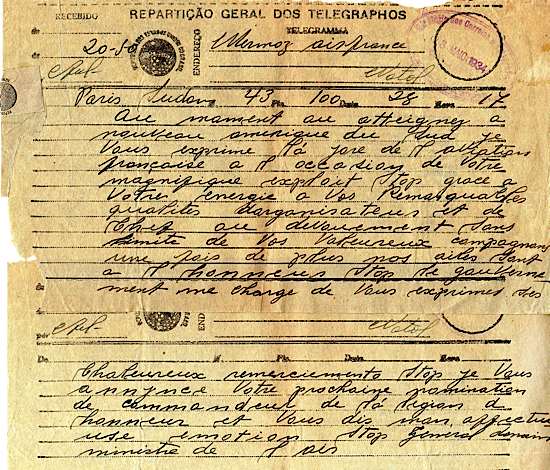 RECEBIDO
REPARTIÇÃO GERAL DOS TELEGRAPHOS
TELEGRAMMA
ENDEREÇO
20-50
Mermoz airfrance
Natal
MAIO 1934
Paris Sudam N. 43 Pls. 100 Data 28 Hora 17
Au moment ou atteignez a
nouveau amerique du sud je
Vous exprime la joie de l aviation
française a l occasion de Votre
magnifique exploit Stop grace a
Votre energie a Vos remarquables
qualites d organisateurs et de
chef au devouement sans
limite de Vos Valeureux compagnons
une fois de plus nos ailes sont
a l honneur Stop le gouverne
ment me charge de Vous exprimer ses
por
END
Natal
De N. Pls. Data Hora
Chaleureux remerciements Stop je Vous
annonce Votre prochaine nomination
de commandeur de la legion d
honneur et Vous dis mon affectu
use emotion Stop general denain
ministre de l air